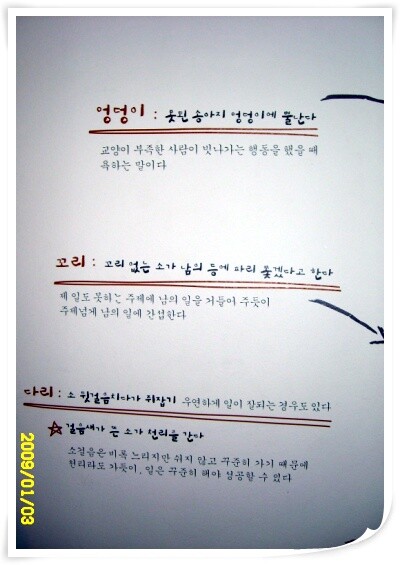 엉덩이 : 못된 송아지 엉덩이에 뿔난다
교양이 부족한 사람이 빗나가는 행동을 했을 때
욕하는 말이다
꼬리 : 꼬리 없는 소가 남의 등에 파리 쫓겠다고 한다
제 일도 못하는 주제에 남의 일을 거들어 주듯이
주제넘게 남의 일에 간섭한다
다리 : 소 뒷걸음치다가 쥐잡기 우연하게 일이 잘되는 경우도 있다
걸음새가 뜬 소가 천리를 간다
소걸음은 비록 느리지만 쉬지 않고 꾸준히 가기 때문에
천리라도 가듯이, 일은 꾸준히 해야 성공할 수 있다
2009/01/03